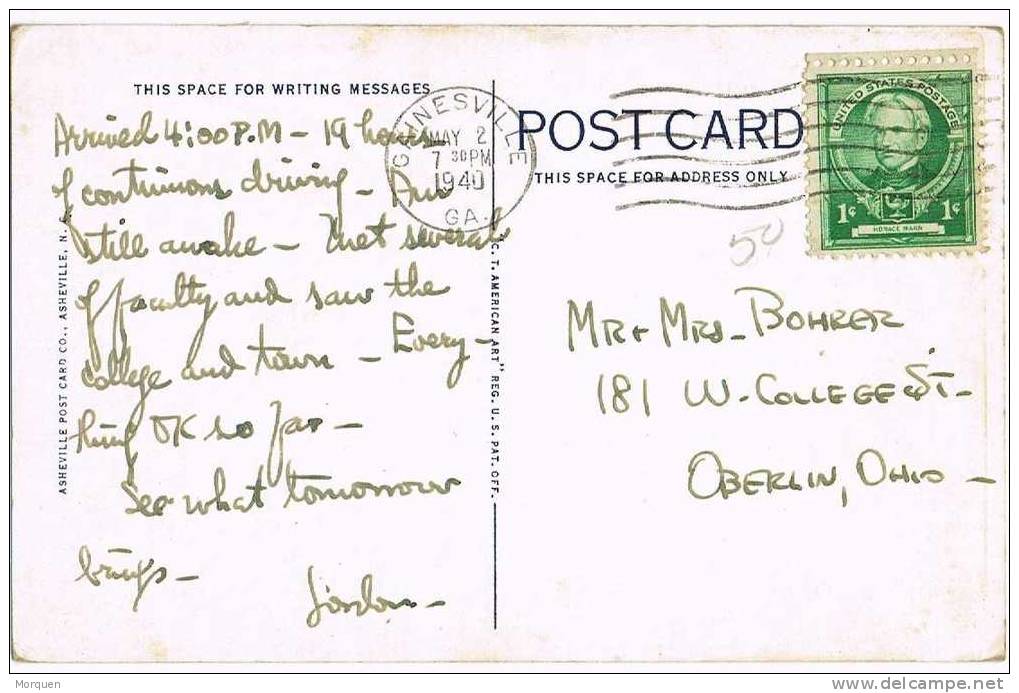 THIS SPACE FOR WRITING MESSAGES
Arrived 4:00 P.M - 19 hours
of continuous driving - Am
still awake - Met several
of faculty and saw the
college and town - Every-
thing OK so far -
See what tomorrow
brings -
Gordon -
ASHEVILLE POST CARD CO., ASHEVILLE, N.
C. T. AMERICAN ART" REG. U. S. PAT. OFF.
GAINESVILLE
MAY 2
7 30 PM
1940
GA.
POST CARD
THIS SPACE FOR ADDRESS ONLY
UNITED STATES POSTAGE
1¢ 1¢
HORACE MANN
50
MR + MRS - BOHRER
181 W. COLLEGE ST -
OBERLIN, OHIO -
Morquen
www.delcampe.net